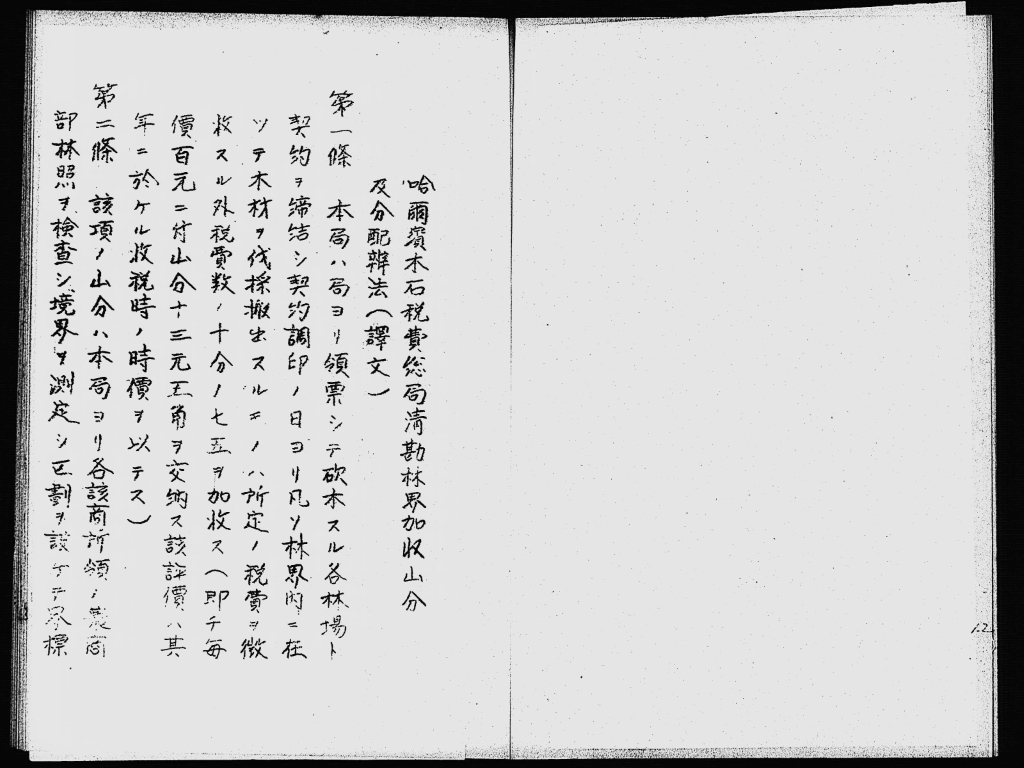 哈爾濱木石税費総局清勘林界加収山分
及分配辦法(譯文)
第一條　本局ハ局ヨリ領票シテ砍木スル各林場ト
契約ヲ締結シ契約調印ノ日ヨリ凡ソ林界内ニ在
ツテ木材ヲ伐採搬出スルモノハ所定ノ税費ヲ徴
收スル外税費数ノ十分ノ七五ヲ加收ス(即チ毎
價百元ニ付山分十三元五角ヲ交納ス該評價ハ其
年ニ於ケル收税時ノ時價ヲ以テス)
第二條　該項ノ山分ハ本局ヨリ各該商所領ノ農商
部林照ヲ檢查シ境界ヲ測定シ区劃ヲ設ケテ界標
12